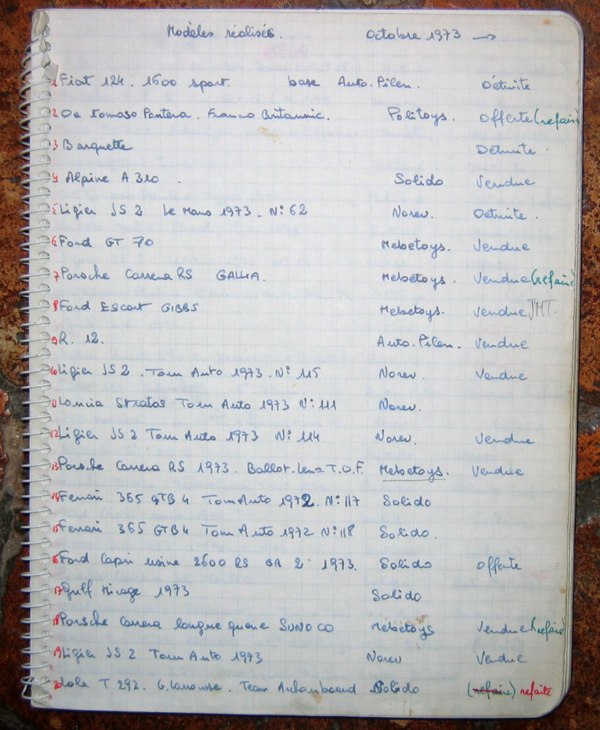 Modèles réalisés. Octobre 1973 →
1 Fiat 124. 1600 sport. base Auto.Pilen. Détruite
2 De Tomaso Pantera. Franco Britannic. Politoys. Offerte (refaire)
3 Barquette Détruite.
4 Alpine A 310. Solido Vendue
5 Ligier JS 2 Le Mans 1973. N° 62 Norev. Détruite.
6 Ford GT 70 Mebetoys. Vendue
7 Porsche Carrera RS GALLIA. Mebetoys. Vendue (refaire)
8 Ford Escort GIBBS Mebetoys. Vendue JMT.
9 R. 12. Auto.Pilen. Vendue
10 Ligier JS 2. Tour Auto 1973. N° 115 Norev. Vendue
11 Lancia Stratos Tour Auto 1973 N° 111 Norev.
12 Ligier JS 2 Tour Auto 1973 N° 114 Norev. Vendue
13 Porsche Carrera RS 1973. Ballot.Lena T.D.F. Mebetoys. Vendue
14 Ferrari 365 GTB 4 Tour Auto 1972. N° 117 Solido
15 Ferrari 365 GTB 4 Tour Auto 1972 N° 118 Solido.
16 Ford Capri usine 2600 RS GR 2 1973. Solido Offerte
17 Gulf Mirage 1973 Solido
18 Porsche Carrera longue queue SUNOCO Mebetoys Vendue (refaire)
19 Ligier JS 2 Tour Auto 1973 Norev Vendue
20 Lola T 292. G. Larousse. Team Solido (refaire) refaite